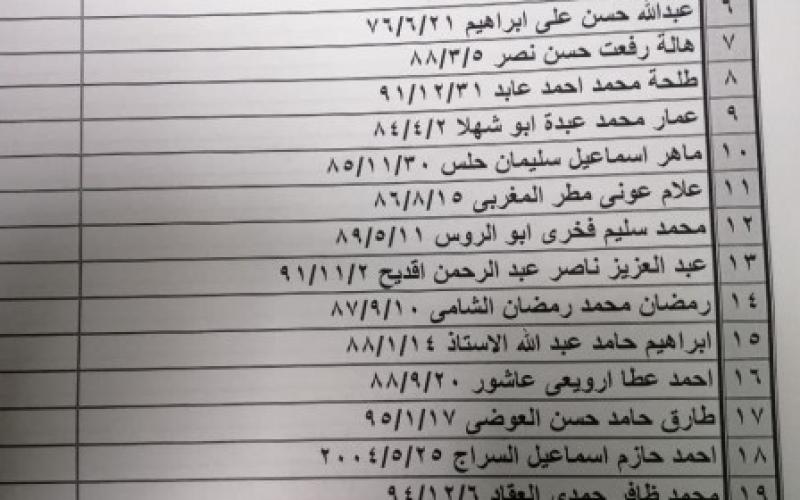 ٦ عبدالله حسن على ابراهيم ٧٦/٦/٢١
٧ هالة رفعت حسن نصر ٨٨/٣/٥
٨ طلحة محمد احمد عابد ٩١/١٢/٣١
٩ عمار محمد عبدة ابو شهلا ٨٤/٤/٢
١٠ ماهر اسماعيل سليمان حلس ٨٥/١١/٣٠
١١ علام عونى مطر المغربى ٨٦/٨/١٥
١٢ محمد سليم فخرى ابو الروس ٨٩/٥/١١
١٣ عبد العزيز ناصر عبد الرحمن اقديح ٩١/١١/٢
١٤ رمضان محمد رمضان الشامى ٨٧/٩/١٠
١٥ ابراهيم حامد عبد الله الاستاذ ٨٨/١/١٤
١٦ احمد عطا ارويعى عاشور ٨٨/٩/٢٠
١٧ طارق حامد حسن العوضى ٩٥/١/١٧
١٨ احمد حازم اسماعيل السراج ٢٠٠٤/٥/٢٥
١٩ محمد ظافر حمدى العقاد ٩٤/١٢/٦